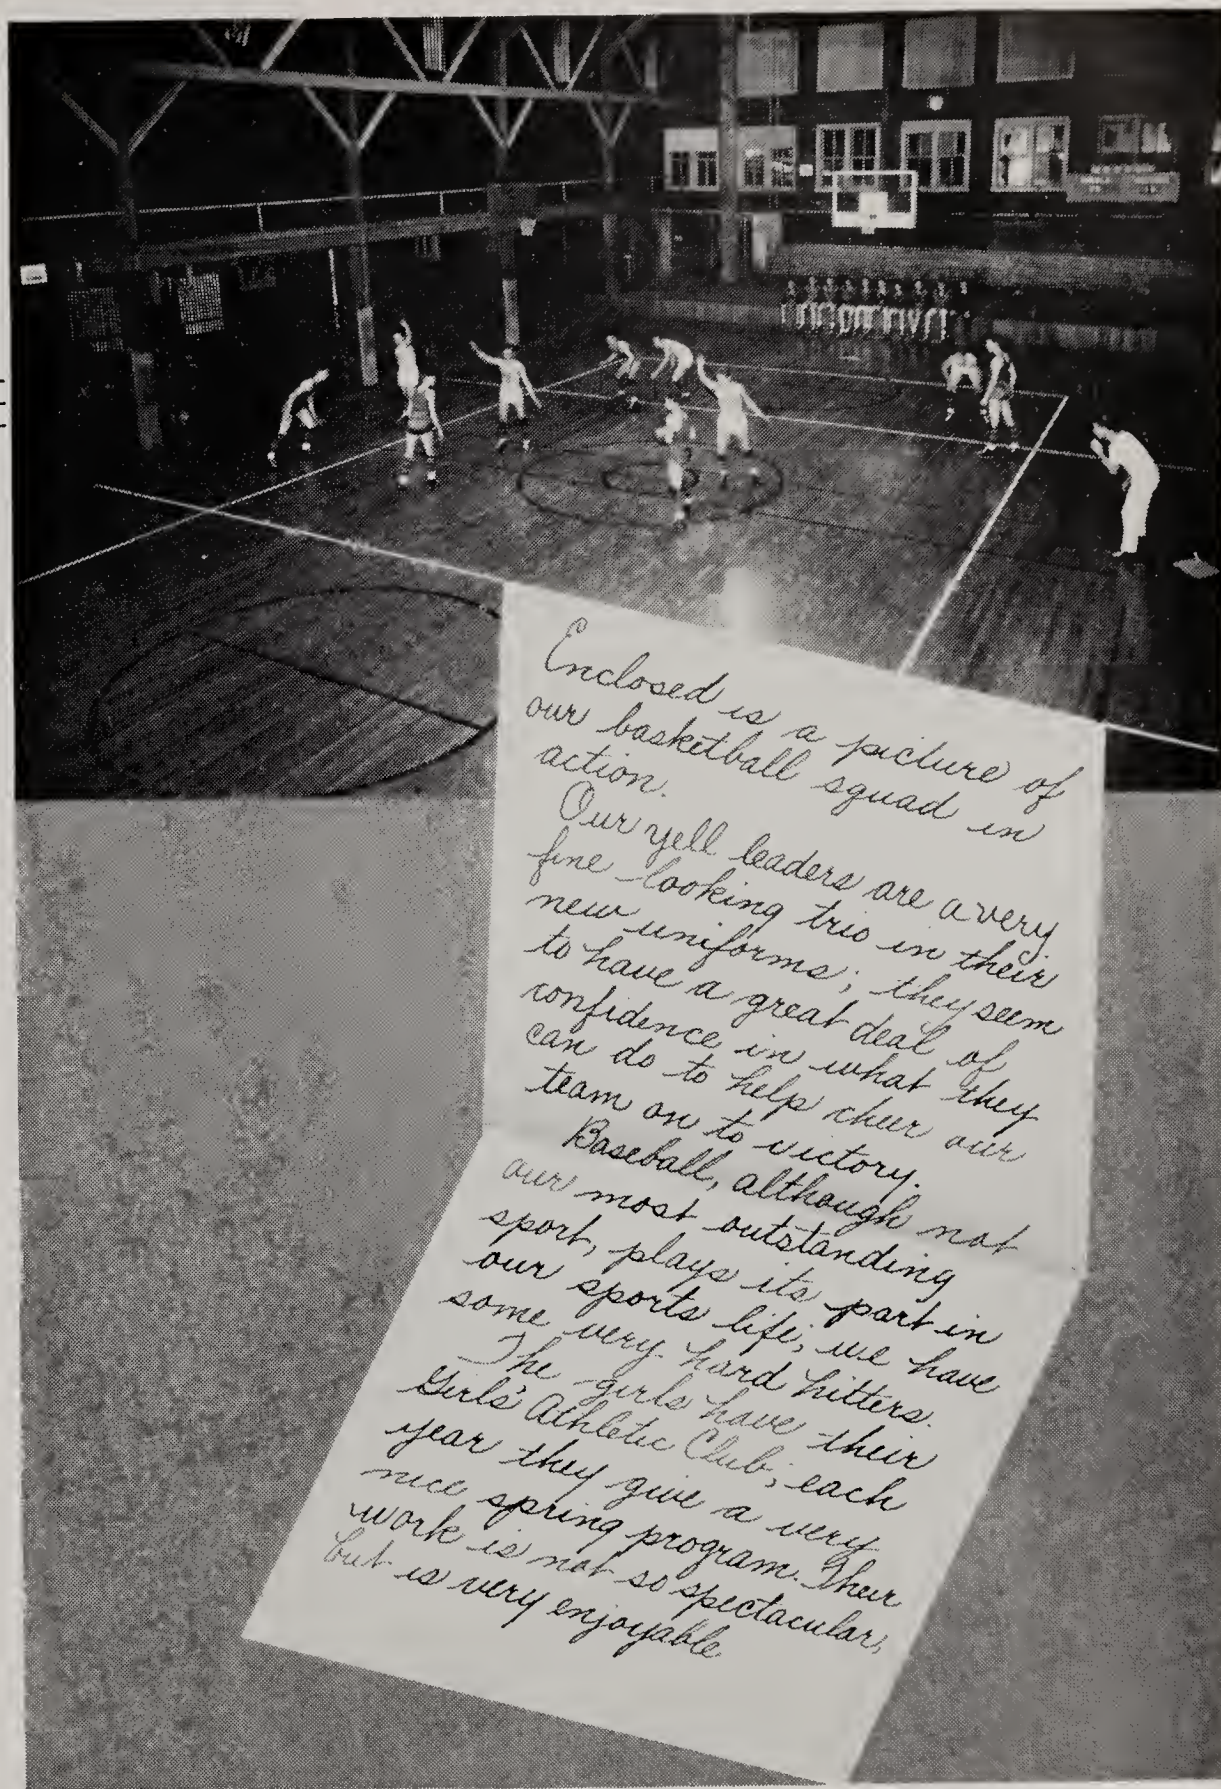 Enclosed is a picture of
our basketball squad in
action.
Our yell leaders are a very
fine looking trio in their
new uniforms; they seem
to have a great deal of
confidence in what they
can do to help cheer our
team on to victory.
Baseball, although not
our most outstanding
sport, plays its part in
our sports life; we have
some very hard hitters.
The girls have their
Girls' Athletic Club; each
year they give a very
nice spring program. Their
work is not so spectacular,
but is very enjoyable